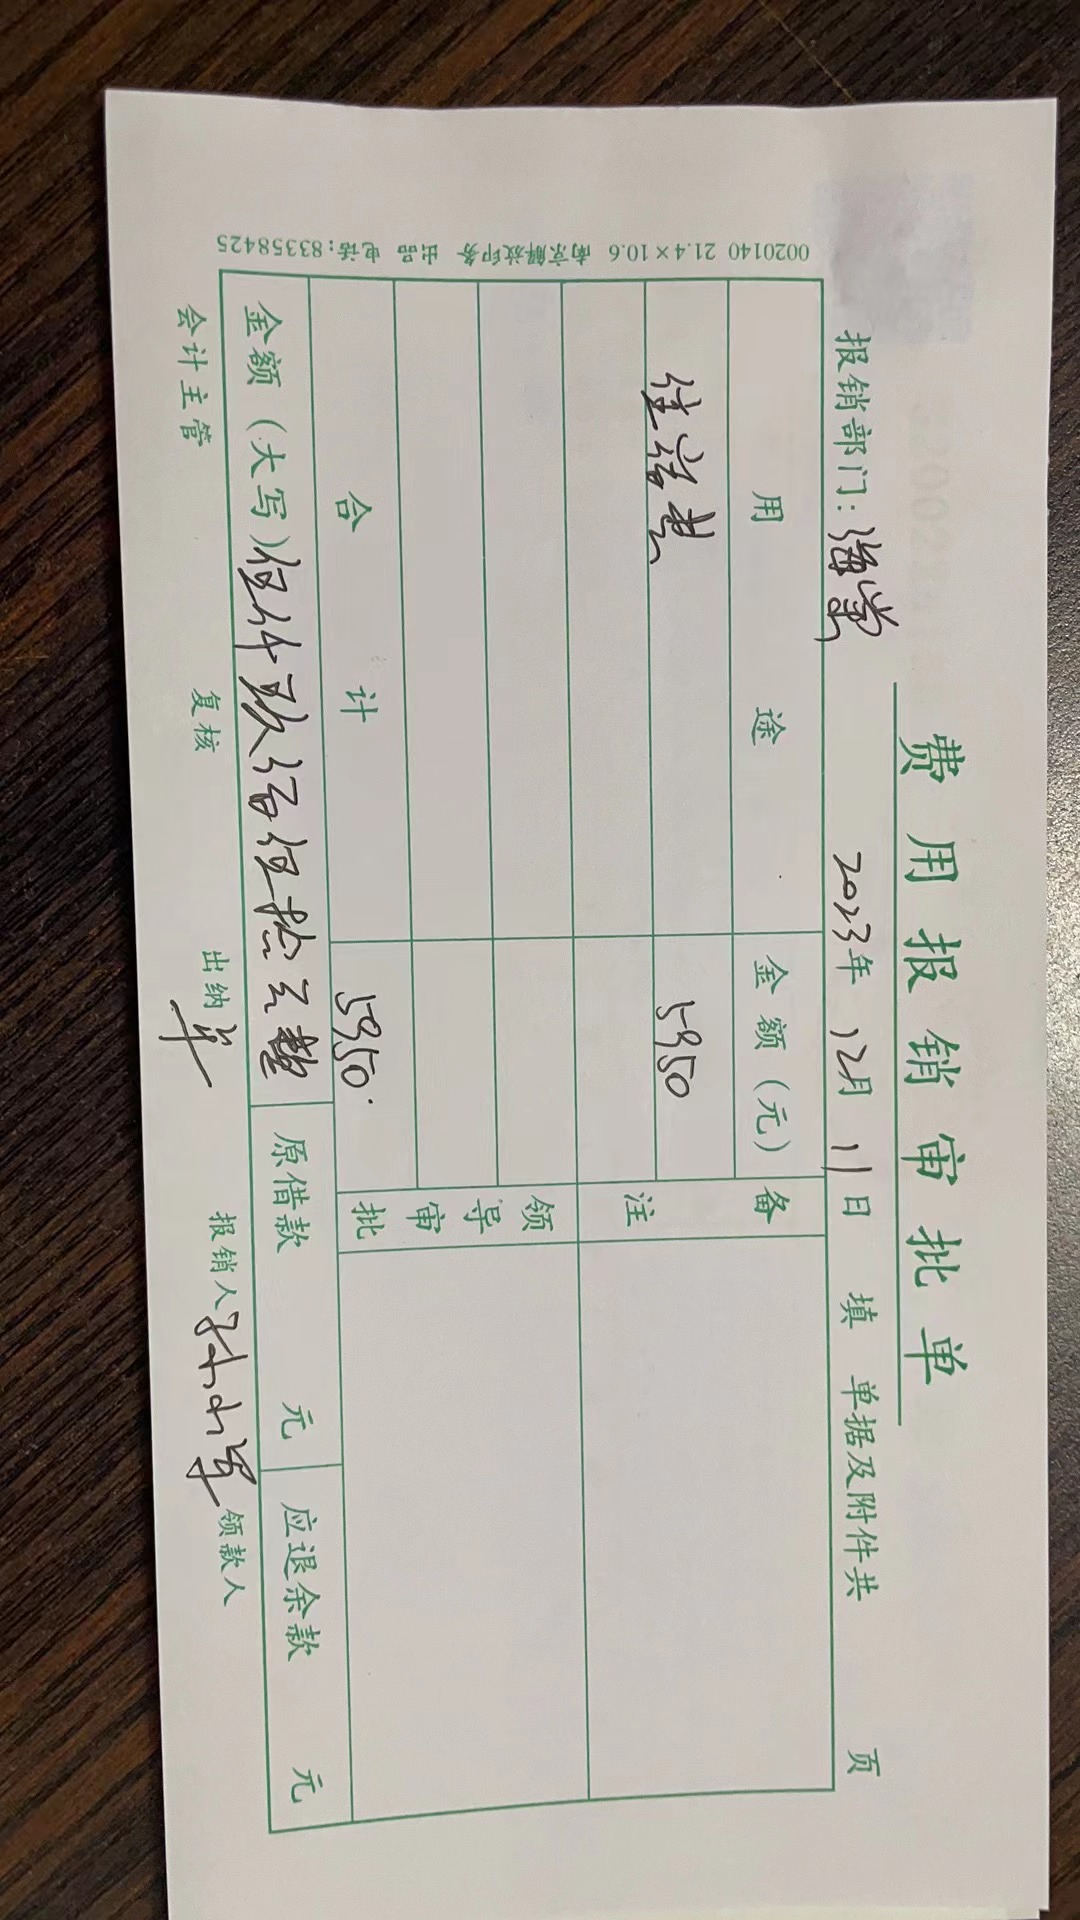 费用报销审批单
报销部门：海棠 2023年 12月 11日 填 单据及附件共 页
用 途 金额（元） 备注
住宿费 5950
领导审批
合 计 5950.
金额（大写）伍仟玖佰伍拾元整 原借款 元 应退余款 元
会计主管 复核 出纳 军 报销人 孙小军 领款人
0020140 21.4×10.6 南京解放印务 出品 电话：83358425